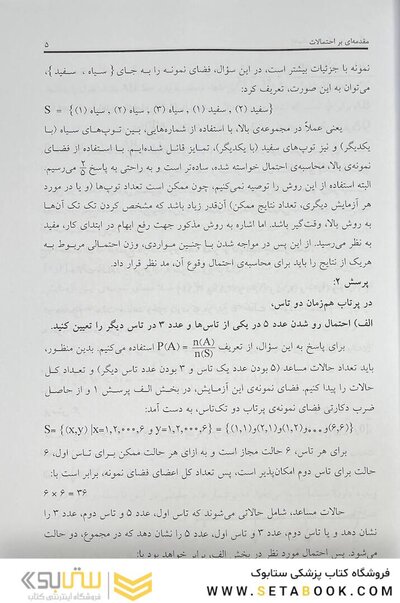 مقدمه‌ای بر احتمالات
۵
نمونه با جزئیات بیشتر است، در این سؤال، فضای نمونه را به جای { سیاه ، سفید }،
می‌توان به این صورت، تعریف کرد:
S = {سفید (۲) , سفید (۱) , سیاه (۳) , سیاه (۲) , سیاه (۱)}
یعنی عملاً در مجموعه‌ی بالا، با استفاده از شماره‌هایی، بین توپ‌های سیاه (با
یکدیگر) و نیز توپ‌های سفید (با یکدیگر)، تمایز قائل شده‌ایم. با استفاده از فضای
نمونه‌ی بالا، محاسبه‌ی احتمال خواسته شده، ساده‌تر است و به راحتی به پاسخ ۲/۵ می‌رسیم.
البته استفاده از این روش را توصیه نمی‌کنیم، چون ممکن است تعداد توپ‌ها (و یا در مورد
هر آزمایش دیگری، تعداد نتایج ممکن) آن‌قدر زیاد باشد که مشخص کردن تک تک آن‌ها
به روش بالا، وقت‌گیر باشد. اما اشاره به روش مذکور جهت رفع ابهام در ابتدای کار، مفید
به نظر می‌رسید. از این پس در مواجه شدن با چنین مواردی، وزن احتمالی مربوط به
هریک از نتایج را باید برای محاسبه‌ی احتمال وقوع آن، مد نظر قرار داد.
پرسش ۲:
در پرتاب هم‌زمان دو تاس،
الف) احتمال رو شدن عدد ۵ در یکی از تاس‌ها و عدد ۳ در تاس دیگر را تعیین کنید.
برای پاسخ به این سؤال، از تعریف P(A) = n(A)/n(S) استفاده می‌کنیم. بدین منظور،
باید تعداد حالات مساعد (۵ بودن عدد یک تاس و ۳ بودن عدد تاس دیگر) و تعداد کل
حالات را پیدا کنیم. فضای نمونه‌ی این آزمایش، در بخش الف پرسش ۱ و از حاصل
ضرب دکارتی فضای نمونه‌ی پرتاب دو تک‌تاس، به دست آمد:
S= {(x,y) |x=۱,۲,۰۰۰,۶ و y=۱,۲,۰۰۰,۶} = {(۱,۱)و(۲,۱)و(۱,۲)و...و(۶,۶)}
برای هر تاس، ۶ حالت مجاز است و به ازای هر حالت ممکن برای تاس اول، ۶
حالت برای تاس دوم امکان‌پذیر است، پس تعداد کل اعضای فضای نمونه، برابر است با:
۶ × ۶ = ۳۶
حالات مساعد، شامل حالاتی می‌شوند که تاس اول، عدد ۵ و تاس دوم، عدد ۳ را
نشان دهد و یا تاس دوم، عدد ۳ و تاس اول، عدد ۵ را نشان دهد که در مجموع، دو حالت
می‌شود. پس احتمال مورد نظر در بخش الف، برابر خواهد بود با:
فروشگاه کتاب پزشکی ستابوک
WWW.SETABOOK.COM
ستابوک
فروشگاه اینترنتی کتاب